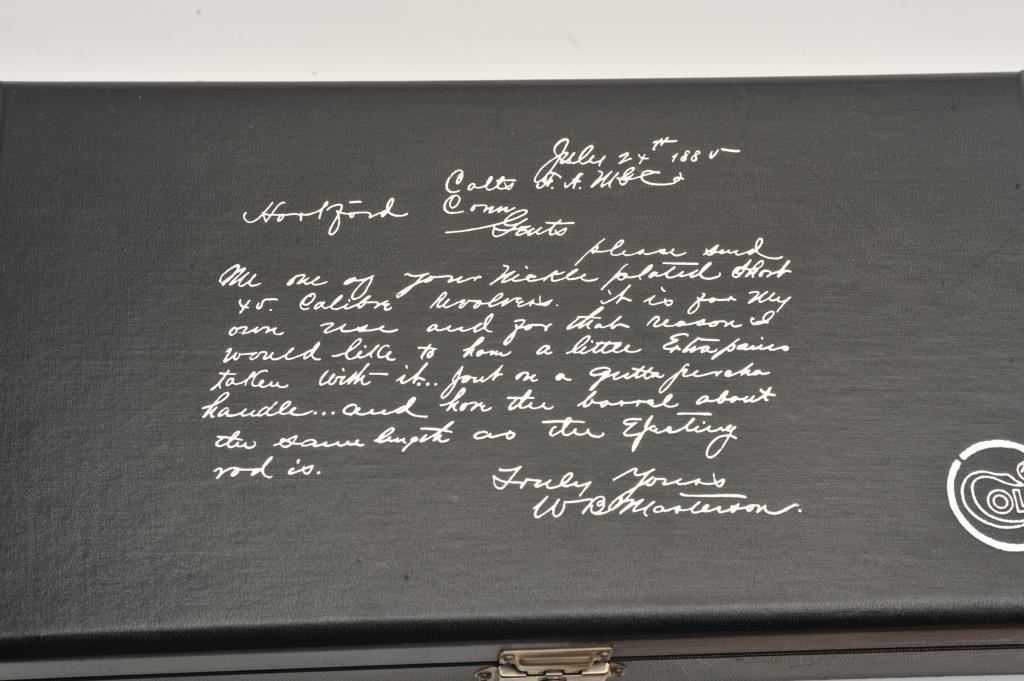 July 24th 1885
Colts F. A. MFG Co
Hartford Conn
Gents
please send
Me one of your Nickle plated Short
45. Calibre Revolvers. it is for My
own use and for that reason I
would like to have a little Extra pains
taken with it.. put on a gutta percha
handle... and have the barrel about
the same length as the Ejecting
rod is.
Truly Yours
W B Masterson.